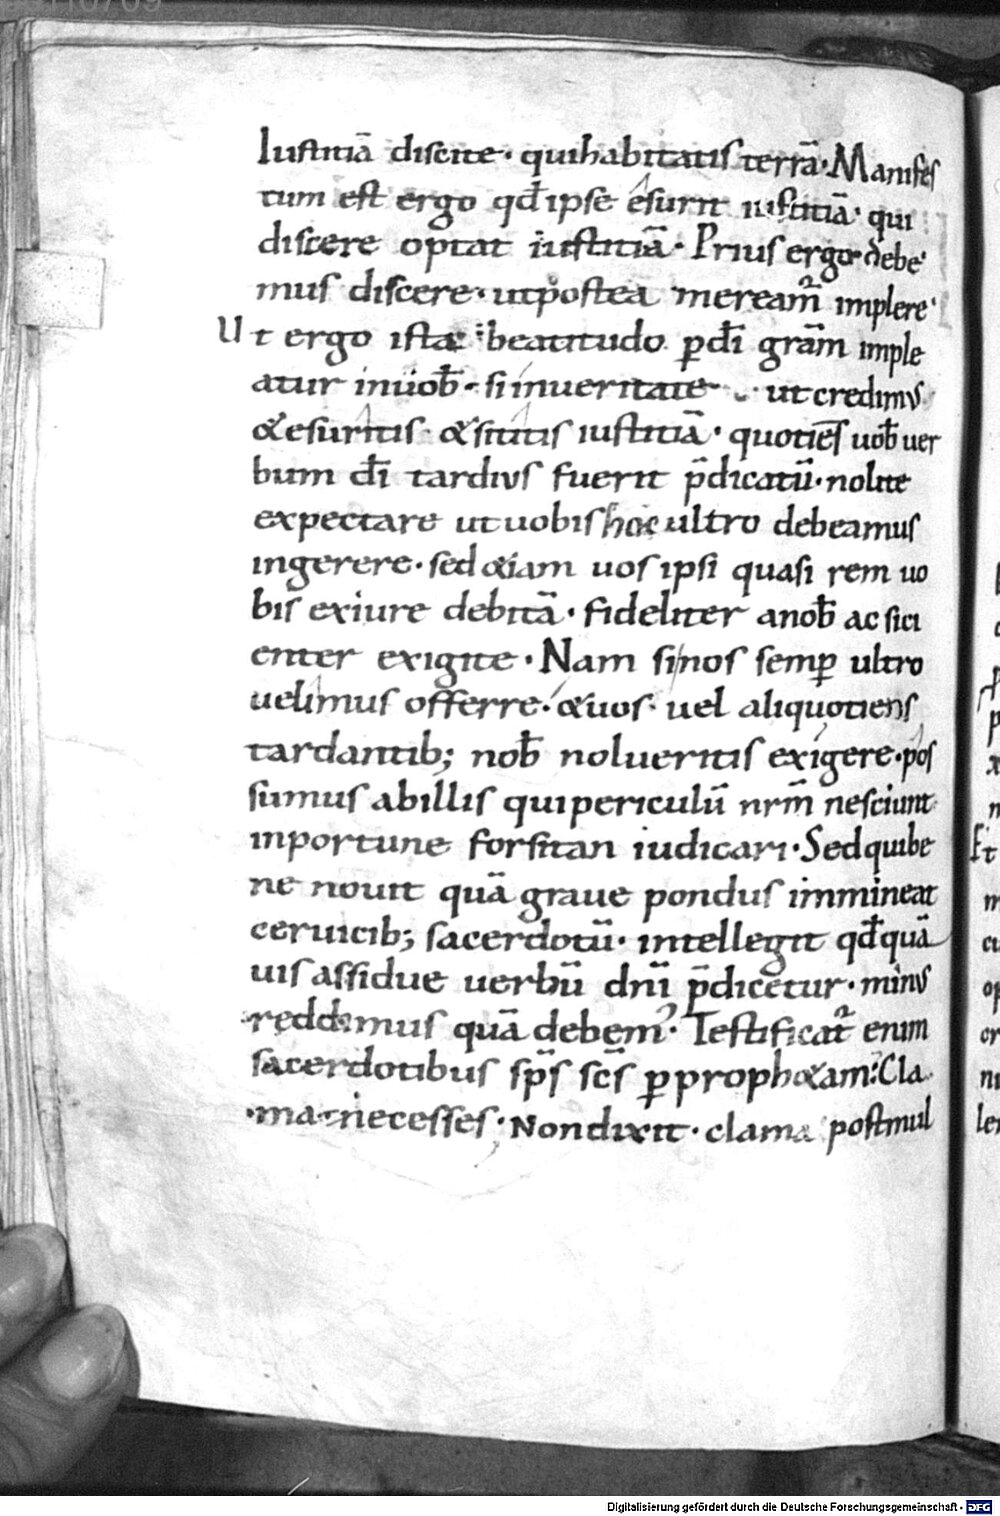 Iustitiā discite · qui habitatis terrā · Manifes
tum est ergo qđ ipse esurit iustitiā · qui
discere optat iustitiā · Prius ergo debe
mus discere · ut postea meream̃ implere ·
Ut ergo ista beatitudo ꝑ dī grām imple
atur in uob̄ · si in ueritate ut credimus
& esuritis · & sititis iustitiā · quotiēs uob̄ uer
bum dī tardius fuerit p̄dicatū · nolite
expectare ut uobis hoc ultro debeamus
ingerere · sed &iam uos ipsi quasi rem uo
bis ex iure debitā · fideliter a nob̄ ac siti
enter exigite · Nam si nos semꝑ ultro
uelimus offerre · & uos · uel aliquotiens
tardantib; nob̄ nolueritis exigere · pos
sumus ab illis qui periculū nr̄m nesciunt
inportune forsitan iudicari · Sed qui be
ne nouit quā graue pondus immineat
ceruicib; sacerdotū · intellegit qđ quā
uis assidue uerbū dnī p̄dicetur · minus
reddimus quā debem' · Testificat̃ enim
sacerdotibus sp̄s sc̄s ꝑ proph&am · Cla
ma ne cesses · Non dixit · clama post mul
Digitalisierung gefördert durch die Deutsche Forschungsgemeinschaft - DFG